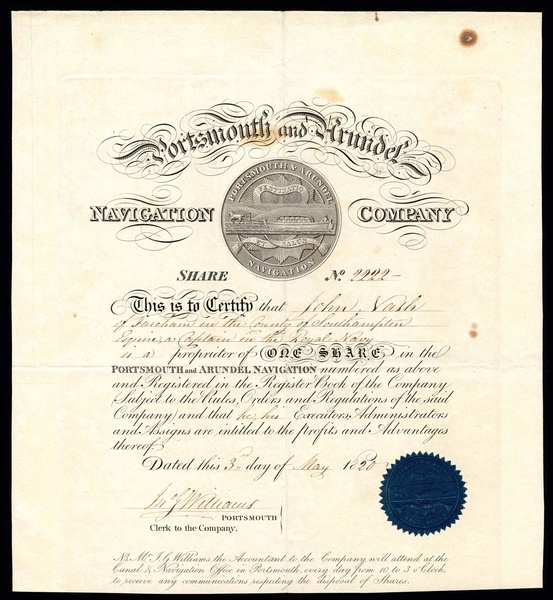 Portsmouth and Arundel
NAVIGATION COMPANY
PORTSMOUTH & ARUNDEL
NAVIGATION
SHARE No. 2222
This is to Certify that John Nash
of Fareham in the County of Southampton
Esquire, a Captain in the Royal Navy
is a proprietor of ONE SHARE in the
PORTSMOUTH and ARUNDEL NAVIGATION numbered as above
and Registered in the Register Book of the Company
Subject to the Rules, Orders and Regulations of the said
Company; and that he, his Executors, Administrators
and Assigns are intitled to the profits and Advantages
thereof.
Dated this 3d. day of May 1820
Williams
PORTSMOUTH
Clerk to the Company.
NB. Mr. J. G. Williams the Accountant to the Company, will attend at the
Canal & Navigation Office in Portsmouth, every day from 10 to 3 o'Clock,
to receive any communications respecting the disposal of Shares.